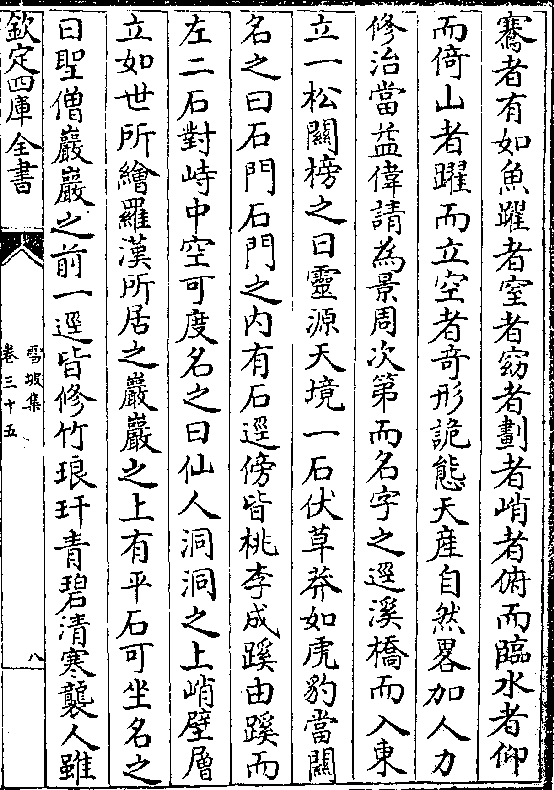 騫者有如魚躍者窒者窈者劃者峭者俯而臨水者仰
而倚山者躍而立空者奇形詭態天産自然畧加人力
修治當益偉請為景周次第而名字之逕溪橋而入東
立一松關榜之曰靈源天境一石伏草莽如虎豹當關
名之曰石門石門之内有石逕傍皆桃李成蹊由蹊而
左二石對峙中空可度名之曰仙人洞洞之上峭壁層
立如世所繪羅漢所居之巖巖之上有平石可坐名之
曰聖僧巖巖之前一逕皆修竹琅玕青碧清寒襲人雖
欽定四庫全書
雪坡集
卷三十五
八